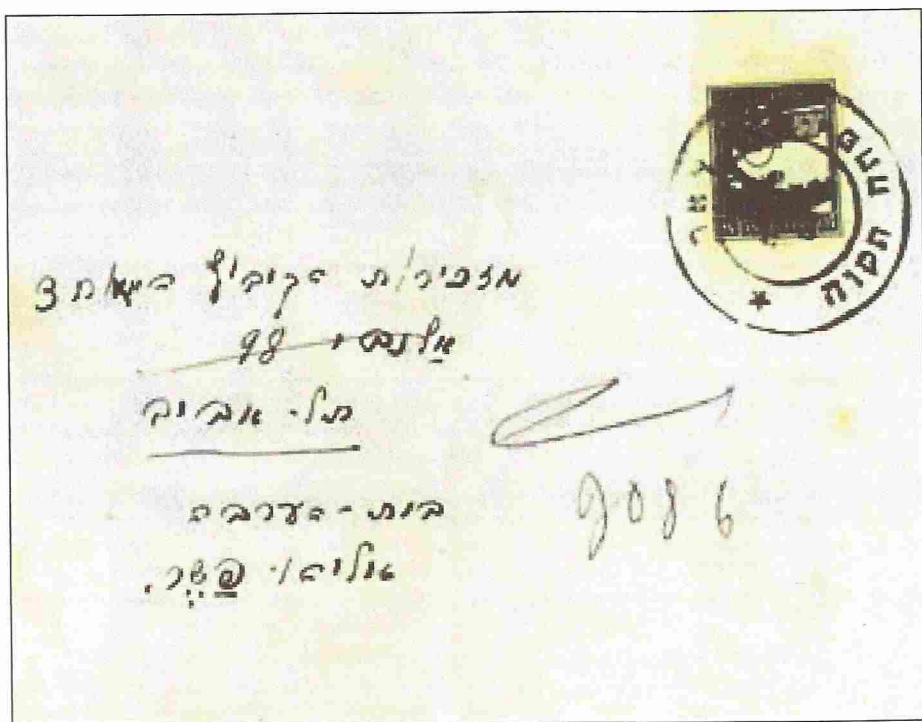 פתח תקוה
מזכירות הקיבוץ המאוחד
אלנבי 98
תל-אביב
בית-הערבה
9086